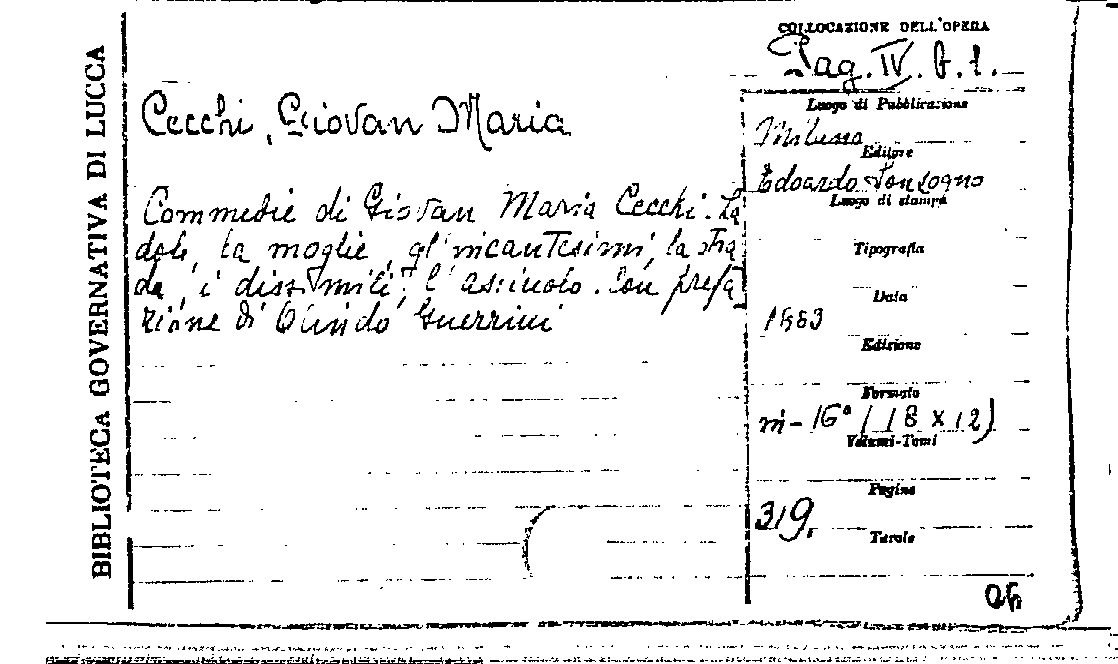 BIBLIOTECA GOVERNATIVA DI LUCCA
Cecchi, Giovan Maria
Commedie di Giovan Maria Cecchi. La
dote, la moglie, gl'incantesimi, la stia
va, i dissimili, l'assiuolo. Con prefa
zione di Olindo Guerrini
COLLOCAZIONE DELL'OPERA
Pag. IV. b. 1.
Luogo di Pubblicazione
Milano
Editore
Edoardo Sonzogno
Luogo di stampa
Tipografia
Data
1883
Edizione
Formato
in-16° (18 x 12)
Volumi-Tomi
Pagine
319.
Tavole